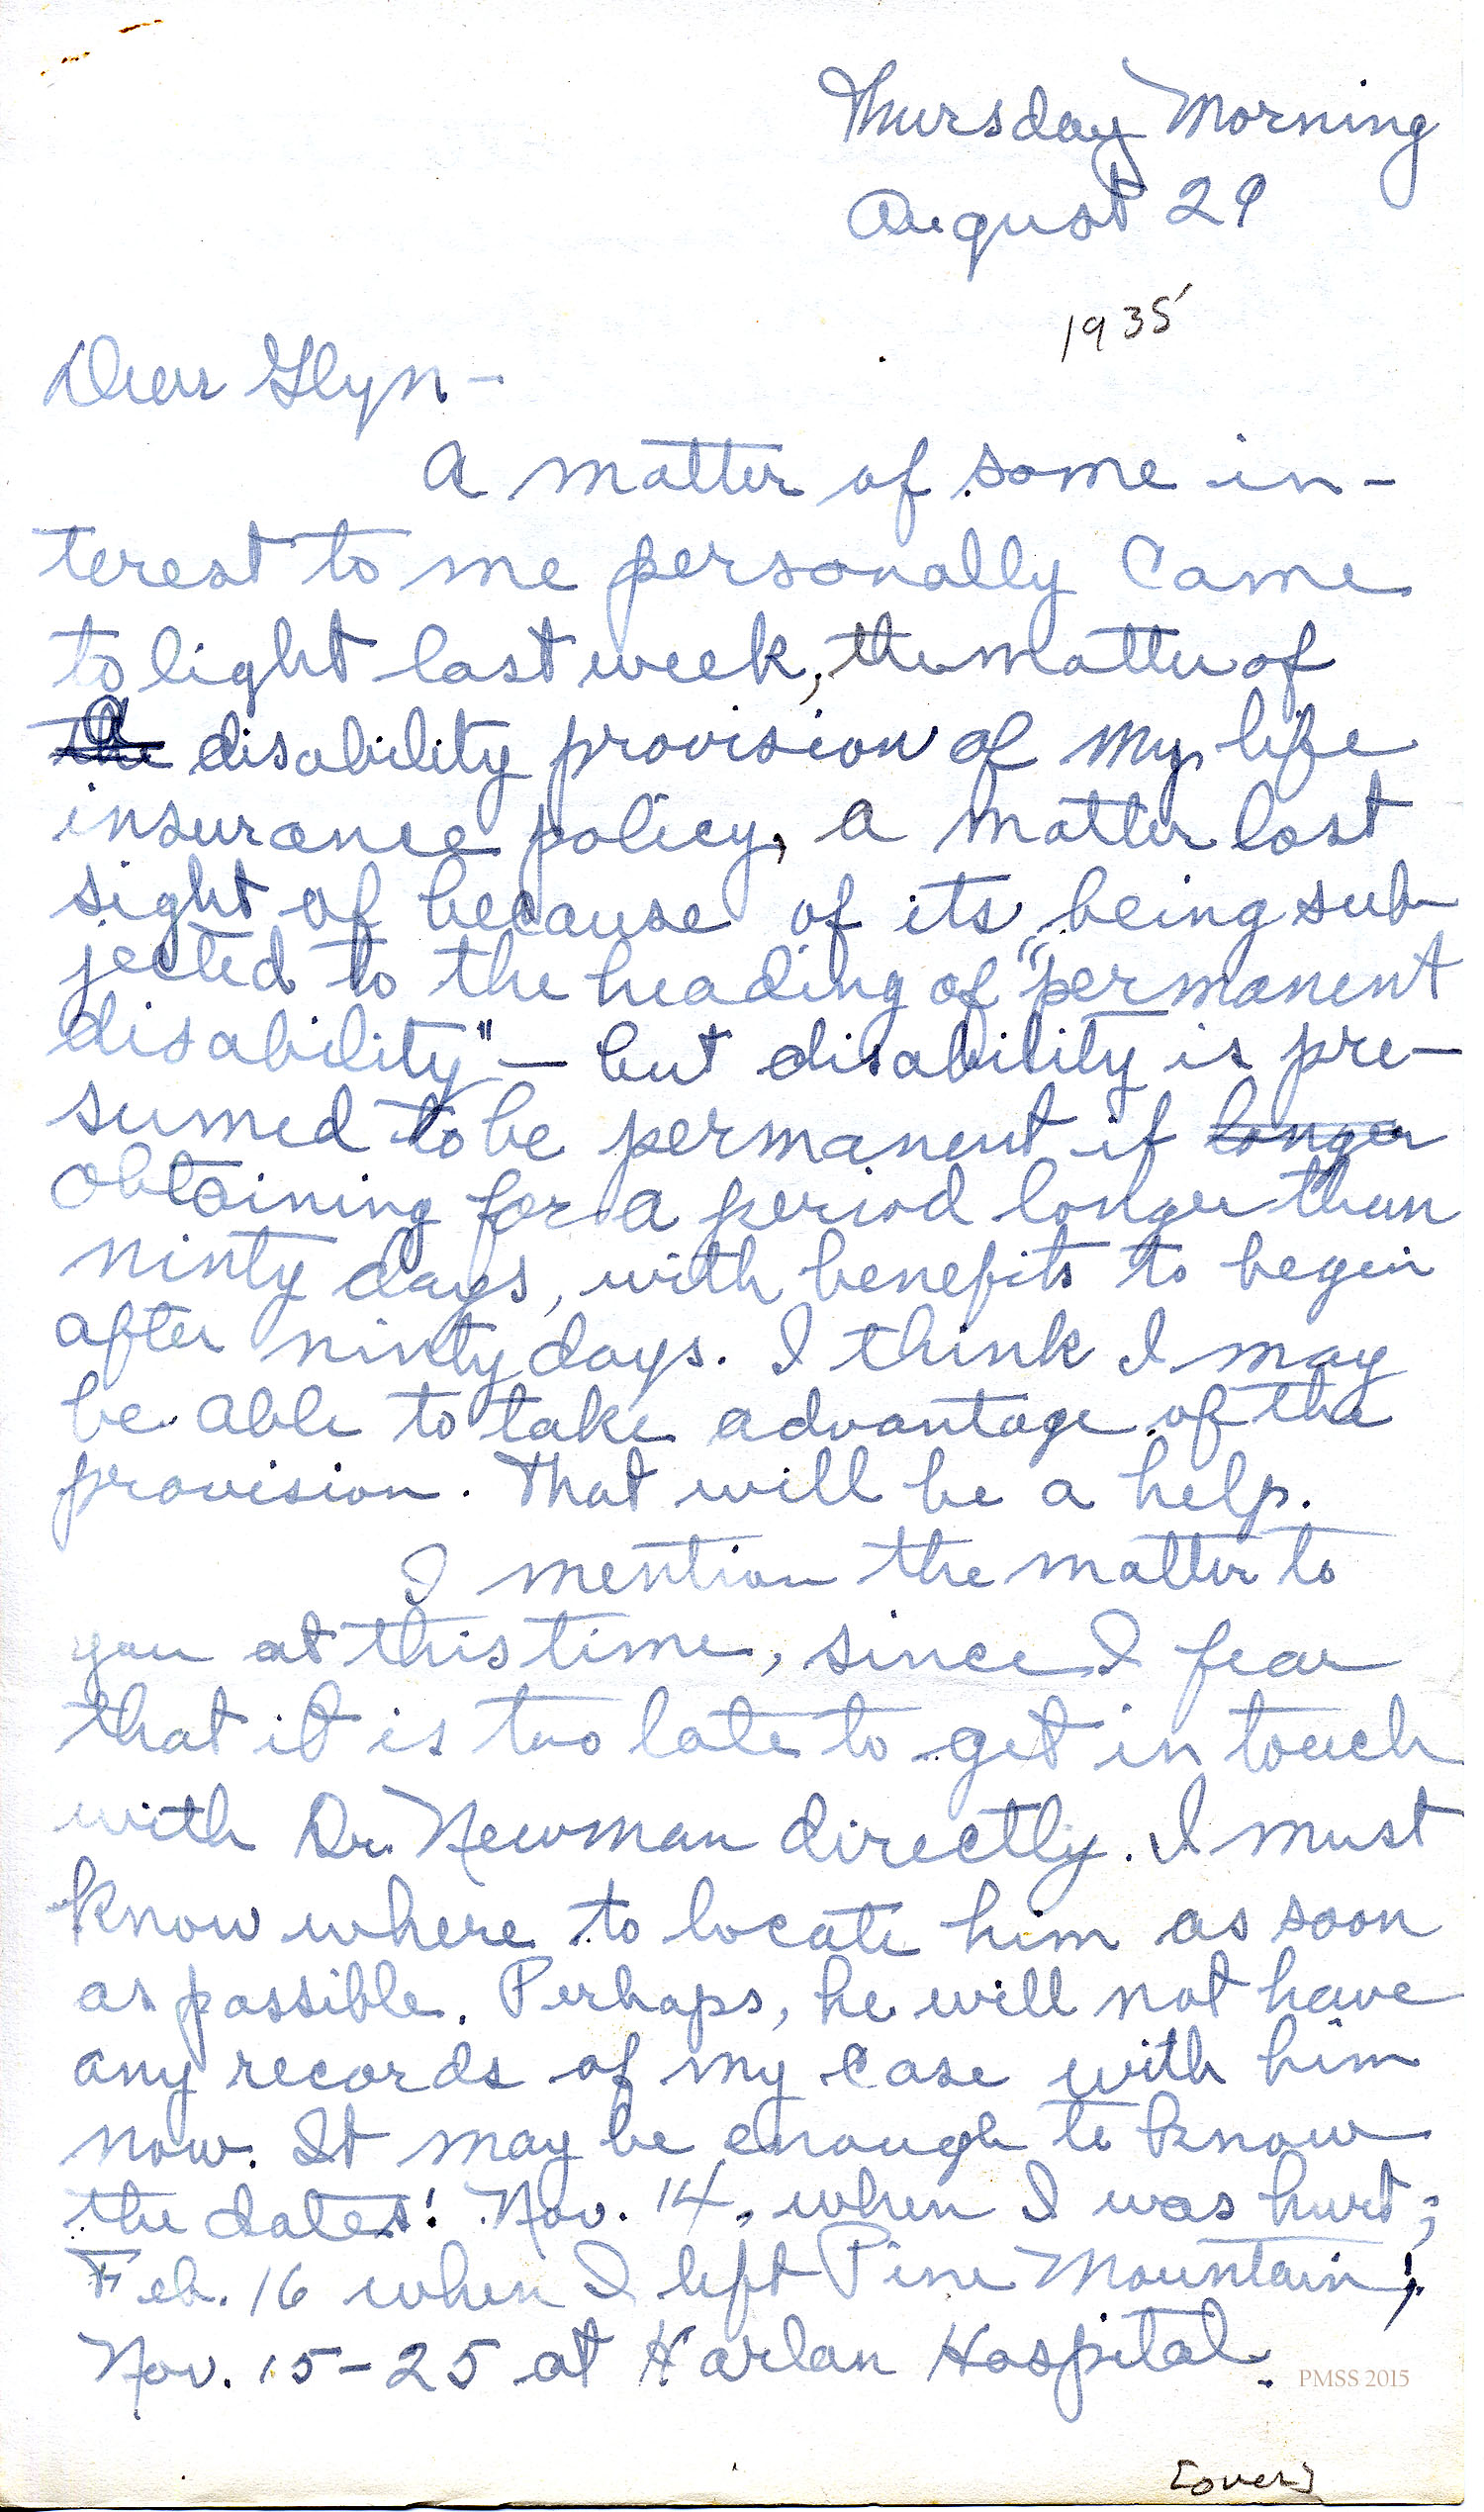 Thursday Morning
August 29
1935
Dear Glyn -
A matter of some in-
terest to me personally came
to light last week, the matter of
the a disability provision of my life
insurance policy, a matter lost
sight of because of its being sub-
jected to the heading of "permanent
disability" — but disability is pre-
sumed to be permanent if longer
obtaining for a period longer than
ninty days, with benefits to begin
after ninty days. I think I may
be able to take advantage of the
provision. That will be a help.
I mention the matter to
you at this time, since I fear
that it is too late to get in touch
with Dr. Newman directly. I must
know where to locate him as soon
as possible. Perhaps, he will not have
any records of my case with him
now. It may be enough to know
the dates: Nov. 14, when I was hurt;
Feb. 16 when I left Pine Mountain;
Nov. 15-25 at Harlan Hospital.
PMSS 2015
[over]